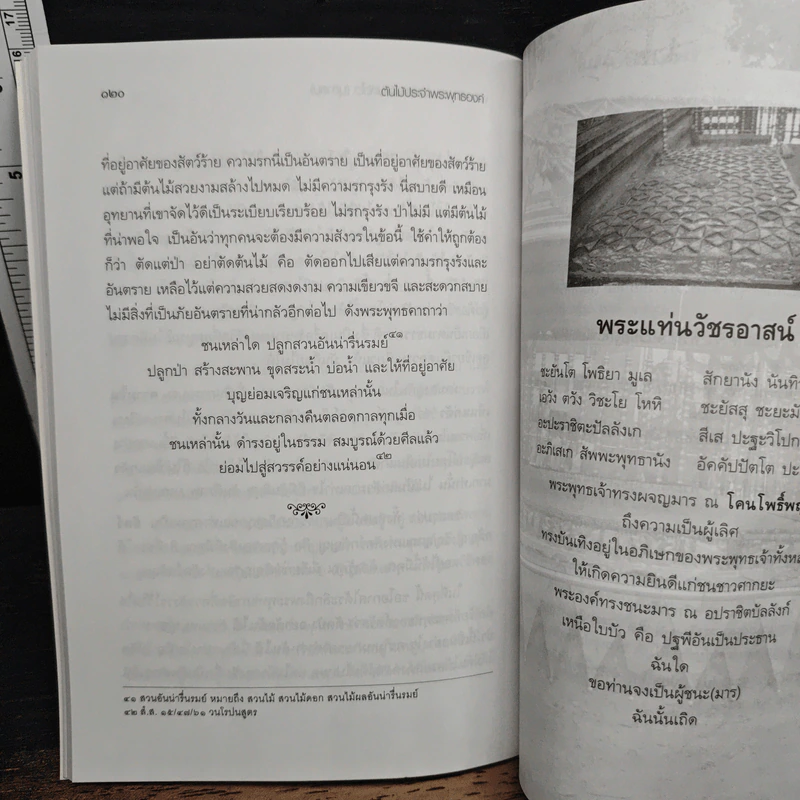 17
16
5
๑๒๐
ต้นไม้ประจำพระพุทธองค์
ที่อยู่อาศัยของสัตว์ร้าย ความรกนี่เป็นอันตราย เป็นที่อยู่อาศัยของสัตว์ร้าย
แต่ถ้ามีต้นไม้สวยงามสล้างไปหมด ไม่มีความรกรุงรัง นี่สบายดี เหมือน
อุทยานที่เขาจัดไว้ดีเป็นระเบียบเรียบร้อย ไม่รกรุงรัง ป่าไม่มี แต่มีต้นไม้
ที่น่าพอใจ เป็นอันว่าทุกคนจะต้องมีความสังวรในข้อนี้ ใช้คำให้ถูกต้อง
ก็ว่า ตัดแต่ป่า อย่าตัดต้นไม้ คือ ตัดออกไปเสียแต่ความรกรุงรังและ
อันตราย เหลือไว้แต่ความสวยสดงดงาม ความเขียวขจี และสะดวกสบาย
ไม่มีสิ่งที่เป็นภัยอันตรายที่น่ากลัวอีกต่อไป ดังพระพุทธคาถาว่า
ชนเหล่าใด ปลูกสวนอันน่ารื่นรมย์๔๑
ปลูกป่า สร้างสะพาน ขุดสระน้ำ บ่อน้ำ และให้ที่อยู่อาศัย
บุญย่อมเจริญแก่ชนเหล่านั้น
ทั้งกลางวันและกลางคืนตลอดกาลทุกเมื่อ
ชนเหล่านั้น ดำรงอยู่ในธรรม สมบูรณ์ด้วยศีลแล้ว
ย่อมไปสู่สวรรค์อย่างแน่นอน๔๒
๔๑ สวนอันน่ารื่นรมย์ หมายถึง สวนไม้ สวนไม้ดอก สวนไม้ผลอันน่ารื่นรมย์
๔๒ สํ.ส. ๑๕/๔๗/๖๑ วนโรปนสูตร
พระแท่นวัชรอาสน์
ชะยันโต โพธิยา มูเล สักยานัง นันทิ
เอวัง ตวัง วิชะโย โหหิ ชะยัสสุ ชะยะมั
อะปะราชิตะปัลลังเก สีเส ปะฐะวิโปก
อะภิเสเก สัพพะพุทธานัง อัคคัปปัตโต ปะ
พระพุทธเจ้าทรงผจญมาร ณ โคนโพธิ์พฤ
ถึงความเป็นผู้เลิศ
ทรงบันเทิงอยู่ในอภิเษกของพระพุทธเจ้าทั้งหล
ให้เกิดความยินดีแก่ชนชาวศากยะ
พระองค์ทรงชนะมาร ณ อปราชิตบัลลังก์
เหนือใบบัว คือ ปฐพีอันเป็นประธาน
ฉันใด
ขอท่านจงเป็นผู้ชนะ(มาร)
ฉันนั้นเถิด